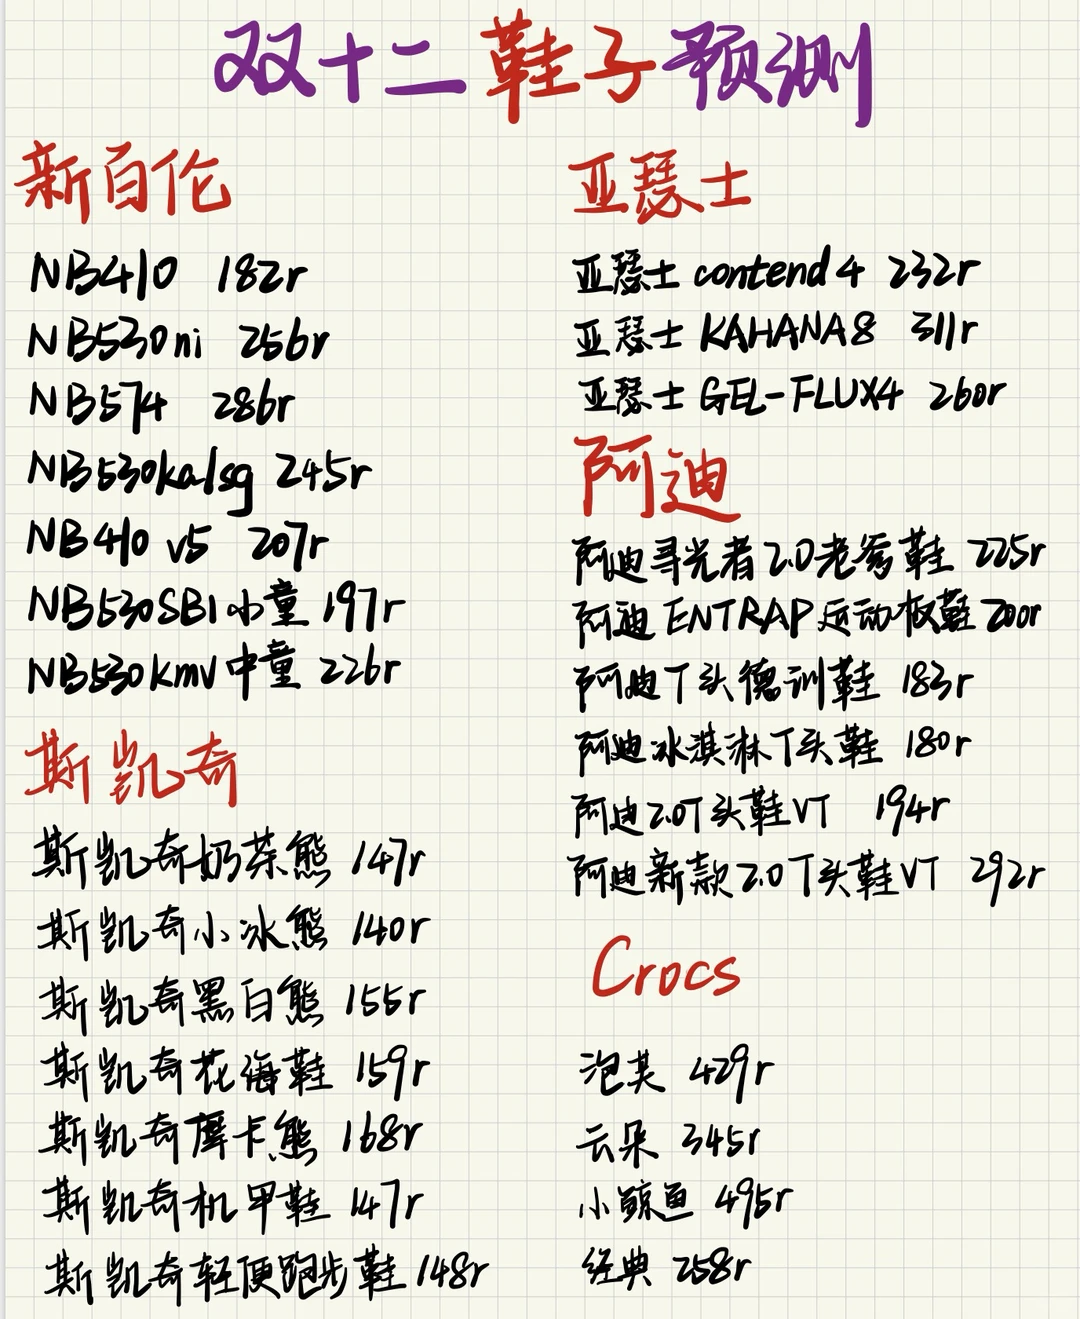 双十二鞋子预测
新百伦
NB410 182r
NB530ni 256r
NB574 286r
NB530ka/sg 245r
NB410 v5 207r
NB530SB1小童 197r
NB530kmv中童 226r
斯凯奇
斯凯奇奶茶熊 147r
斯凯奇小冰熊 140r
斯凯奇黑白熊 155r
斯凯奇花海鞋 159r
斯凯奇摩卡熊 168r
斯凯奇机甲鞋 147r
斯凯奇轻便跑步鞋 148r
亚瑟士
亚瑟士 contend 4 232r
亚瑟士 KAHANA8 311r
亚瑟士 GEL-FLUX4 260r
阿迪
阿迪寻光者2.0老爹鞋 225r
阿迪ENTRAP运动板鞋 200r
阿迪T头德训鞋 183r
阿迪冰淇淋T头鞋 180r
阿迪2.0T头鞋VT 194r
阿迪新款2.0T头鞋VT 292r
Crocs
泡芙 429r
云朵 345r
小鲸鱼 495r
经典 258r